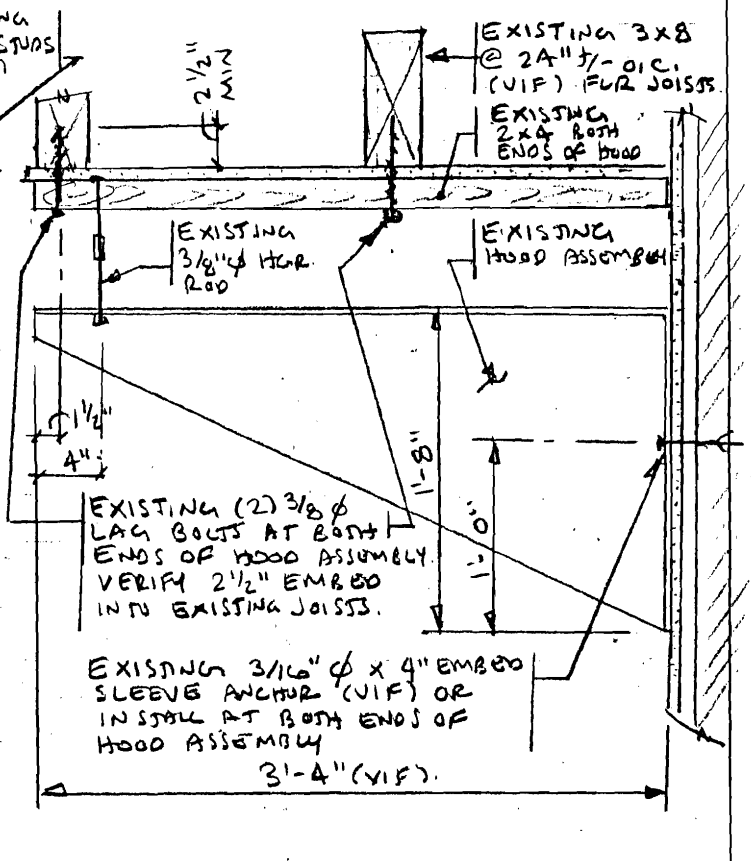 STUDS
2½"
MIN
EXISTING 3X8
@ 24" +/- O.C.
(VIF) FLR JOISTS
EXISTING
2X4 BOTH
ENDS OF HOOD
EXISTING
3/8"φ HGR.
ROD
EXISTING
HOOD ASSEMBLY
1½"
4"
1'-8"
1'-0"
EXISTING (2) 3/8 φ
LAG BOLTS AT BOTH
ENDS OF HOOD ASSEMBLY.
VERIFY 2½" EMBED
INTO EXISTING JOISTS.
EXISTING 3/16" φ X 4" EMBED
SLEEVE ANCHOR (VIF) OR
INSTALL AT BOTH ENDS OF
HOOD ASSEMBLY
3'-4" (VIF).